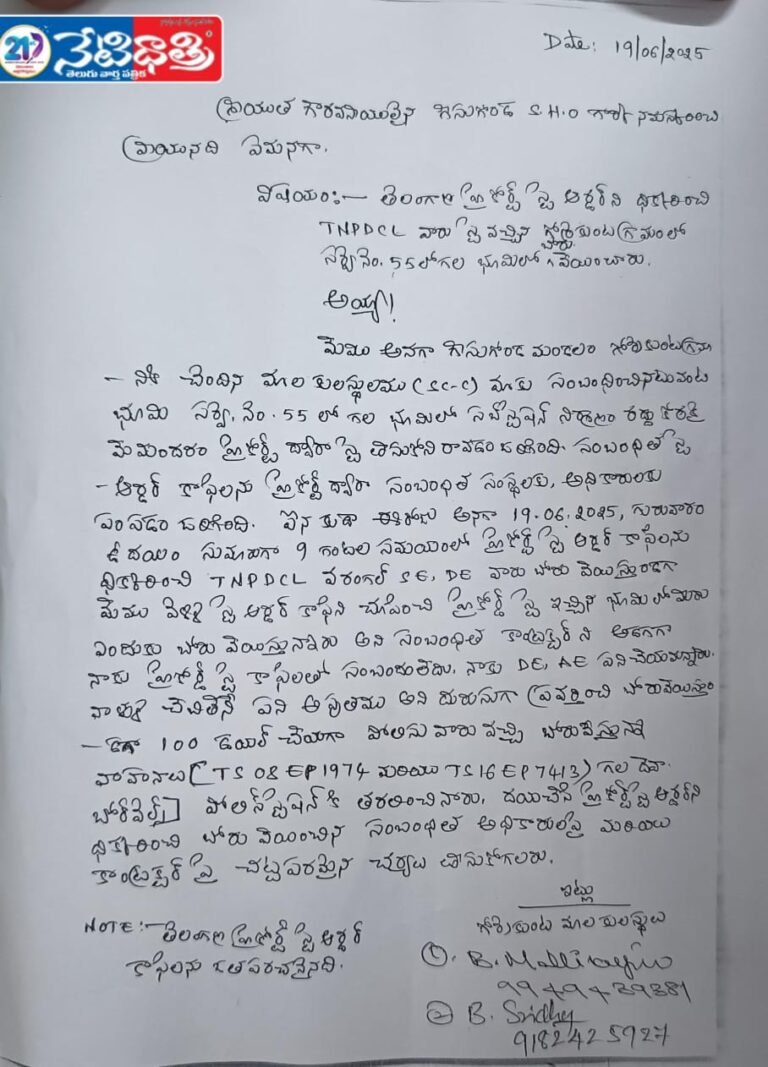 నేటిధాత్రి
తెలుగు వార్త పత్రిక
Date: 19/06/2025
శ్రీయుత గౌరవనీయులైన గీసుగొండ S.H.O గారికి నమస్కరించి
వ్రాయునది ఏమనగా.
విషయం:- తెలంగాణ హైకోర్ట్ స్టై ఆర్డర్ ని ధిక్కరించి
TNPDCL వారు స్టై వచ్చిన గోర్రెకుంట గ్రామంలో
సర్వే నెం. 55 లో గల భూమిలో బోరు వేయించారు.
అయ్యా!
మేము అనగా గీసుగొండ మండలం గోర్రెకుంట గ్రామా
- నికి చెందిన మాల కులస్థులము (SC-C) మాకు సంబంధించినటువంటి
భూమి సర్వే. నెం. 55 లో గల భూమిలో సబ్ స్టేషన్ నిర్మాణం రద్దు కొరకై
మేమందరం హైకోర్ట్ ద్వారా స్టై తీసుకొని రావడం జరిగింది. సంబంధిత స్టై
- ఆర్డర్ కాపీలను హైకోర్ట్ ద్వారా సంబంధిత సంస్థలకు, అధికారులకు
పంపడం జరిగింది. ఐన కూడా ఈరోజు అనగా 19.06.2025, గురువారం
ఉదయం సుమారుగా 9 గంటల సమయంలో హైకోర్ట్ స్టై ఆర్డర్ కాపీలను
ధిక్కరించి TNPDCL వరంగల్ SE, DE వారు బోరు వేయిస్తుండగా
మేము వెళ్లి స్టై ఆర్డర్ కాపీని చూపించి హైకోర్ట్ స్టై ఇచ్చిన భూమిలో మీరు
ఎందుకు బోరు వేయిస్తున్నారు అని సంబంధిత కాంట్రాక్టర్ ని అడగగా
నాకు హైకోర్ట్ స్టై కాపీలతో సంబందంలేదు. నాకు DE, AE పని చేయమన్నారు.
వాళ్లు చెబితేనే పని ఆపుతము అని దురుసుగా ప్రవర్తించి బోరు వేయిస్తుం
- డగా 100 డయల్ చేయగా పోలీసు వారు వచ్చి బోరు వేస్తున్న
వాహనాలు (TS 08 EP 1974 మరియు TS 16 EP 7413) గల దేవా
బోర్ వెల్స్] పోలీస్ స్టేషన్ కి తరలించినారు. దయచేసి హైకోర్ట్ స్టై ఆర్డర్ ని
ధిక్కరించి బోరు వేయించిన సంబంధిత అధికారులపై మరియు
కాంట్రాక్టర్ పై చట్టపరమైన చర్యలు తీసుకోగలరు.
ఇట్లు
గోర్రెకుంట మాల కులస్థులు
NOTE:- తెలంగాణ హైకోర్ట్ స్టై ఆర్డర్
కాపీలను జతపరచనైనది.
①. B. Malliarjun
9949439381
② B. Sridhy
9182425927